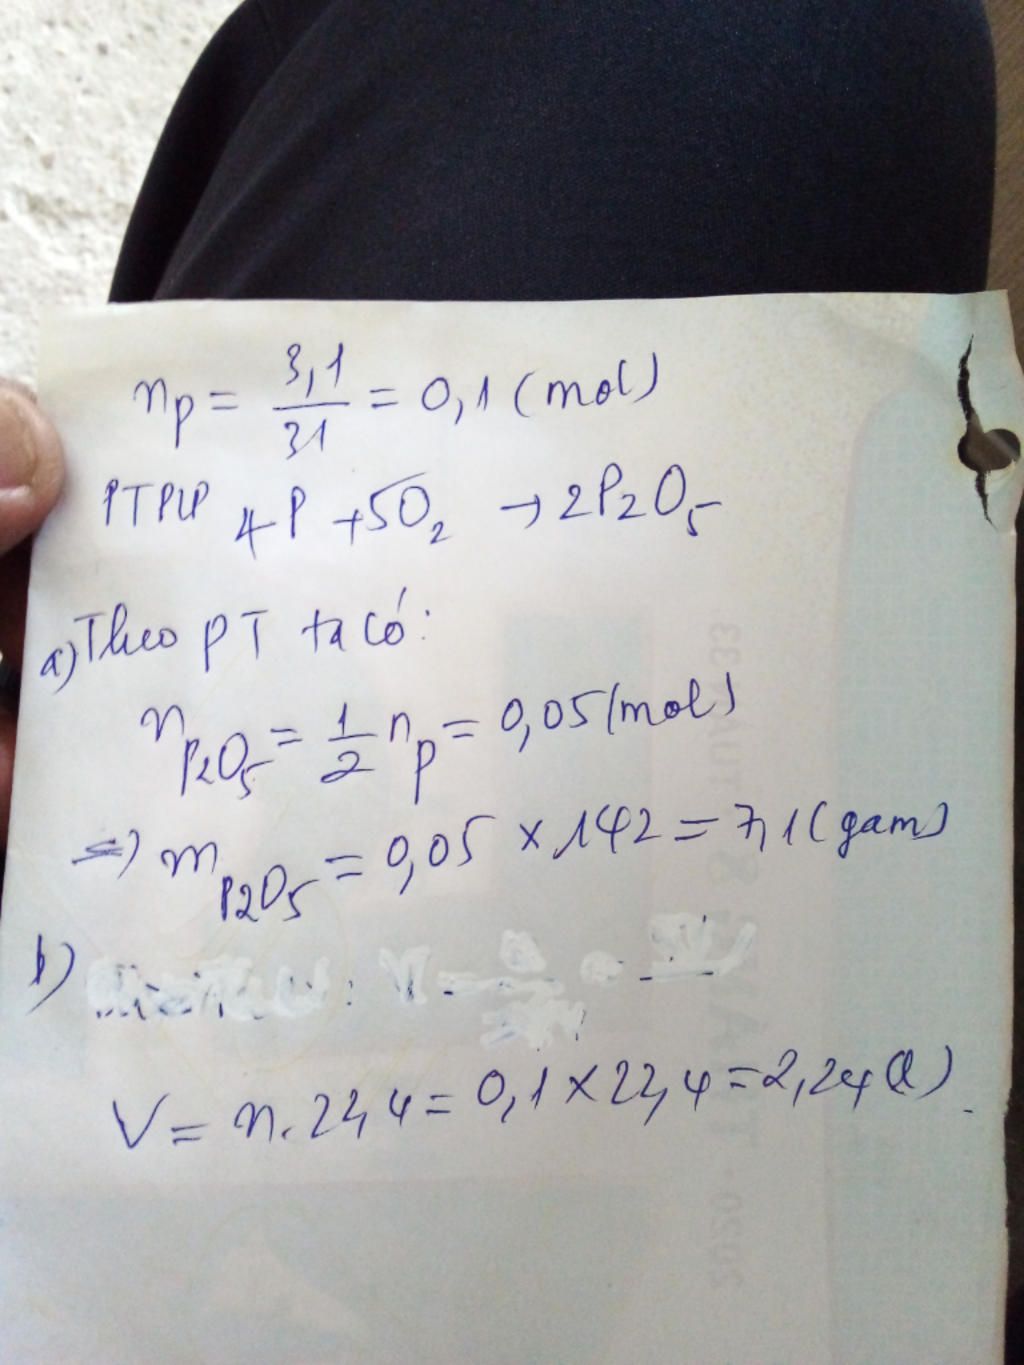 nP = 3,1/31 = 0,1 (mol)
PTPƯ 4P + 5O2 → 2P2O5
a) Theo PT ta có:
nP2O5 = 1/2 nP = 0,05 (mol)
=> mP2O5 = 0,05 × 142 = 7,1 (gam)
b)
V = n. 22,4 = 0,1 × 22,4 = 2,24 (l)